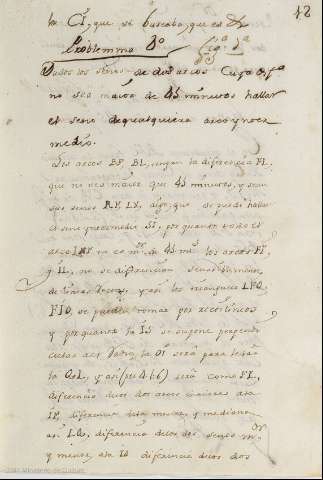 42
la CI, que se buscaba, que es &
Problemma 8º Fig. 5ª
Dados los senos de dos arcos cuya difª
no sea maior de 45 minutos hallar
el seno de qualquiera arco
medio.
Los arcos BF, BL, tengan la diferencia FL,
que no sea maior que 45 minutos, y sean
sus senos LX, digo, que se puede hallar
el seno intermedio SI, por quanto todo el
arco no es mor. de 45 ms los arcos FI,
y IL, no se diferencian sensiblemente
de lineas rectas, y asi los triangulos LFO,
FIO, se pueden tomar por rectilineos
y por quanto la IS se supone perpendi
cular al radio, la OI será paralela
la y asi (pr 4.6 6) será como FL,
diferencia de los dos arcos maiores ata
IF, diferencia del mayor, y mediano
asi LQ, diferencia de los senos mor
y menor, ata diferencia de los dos
Ministerio de Cultura